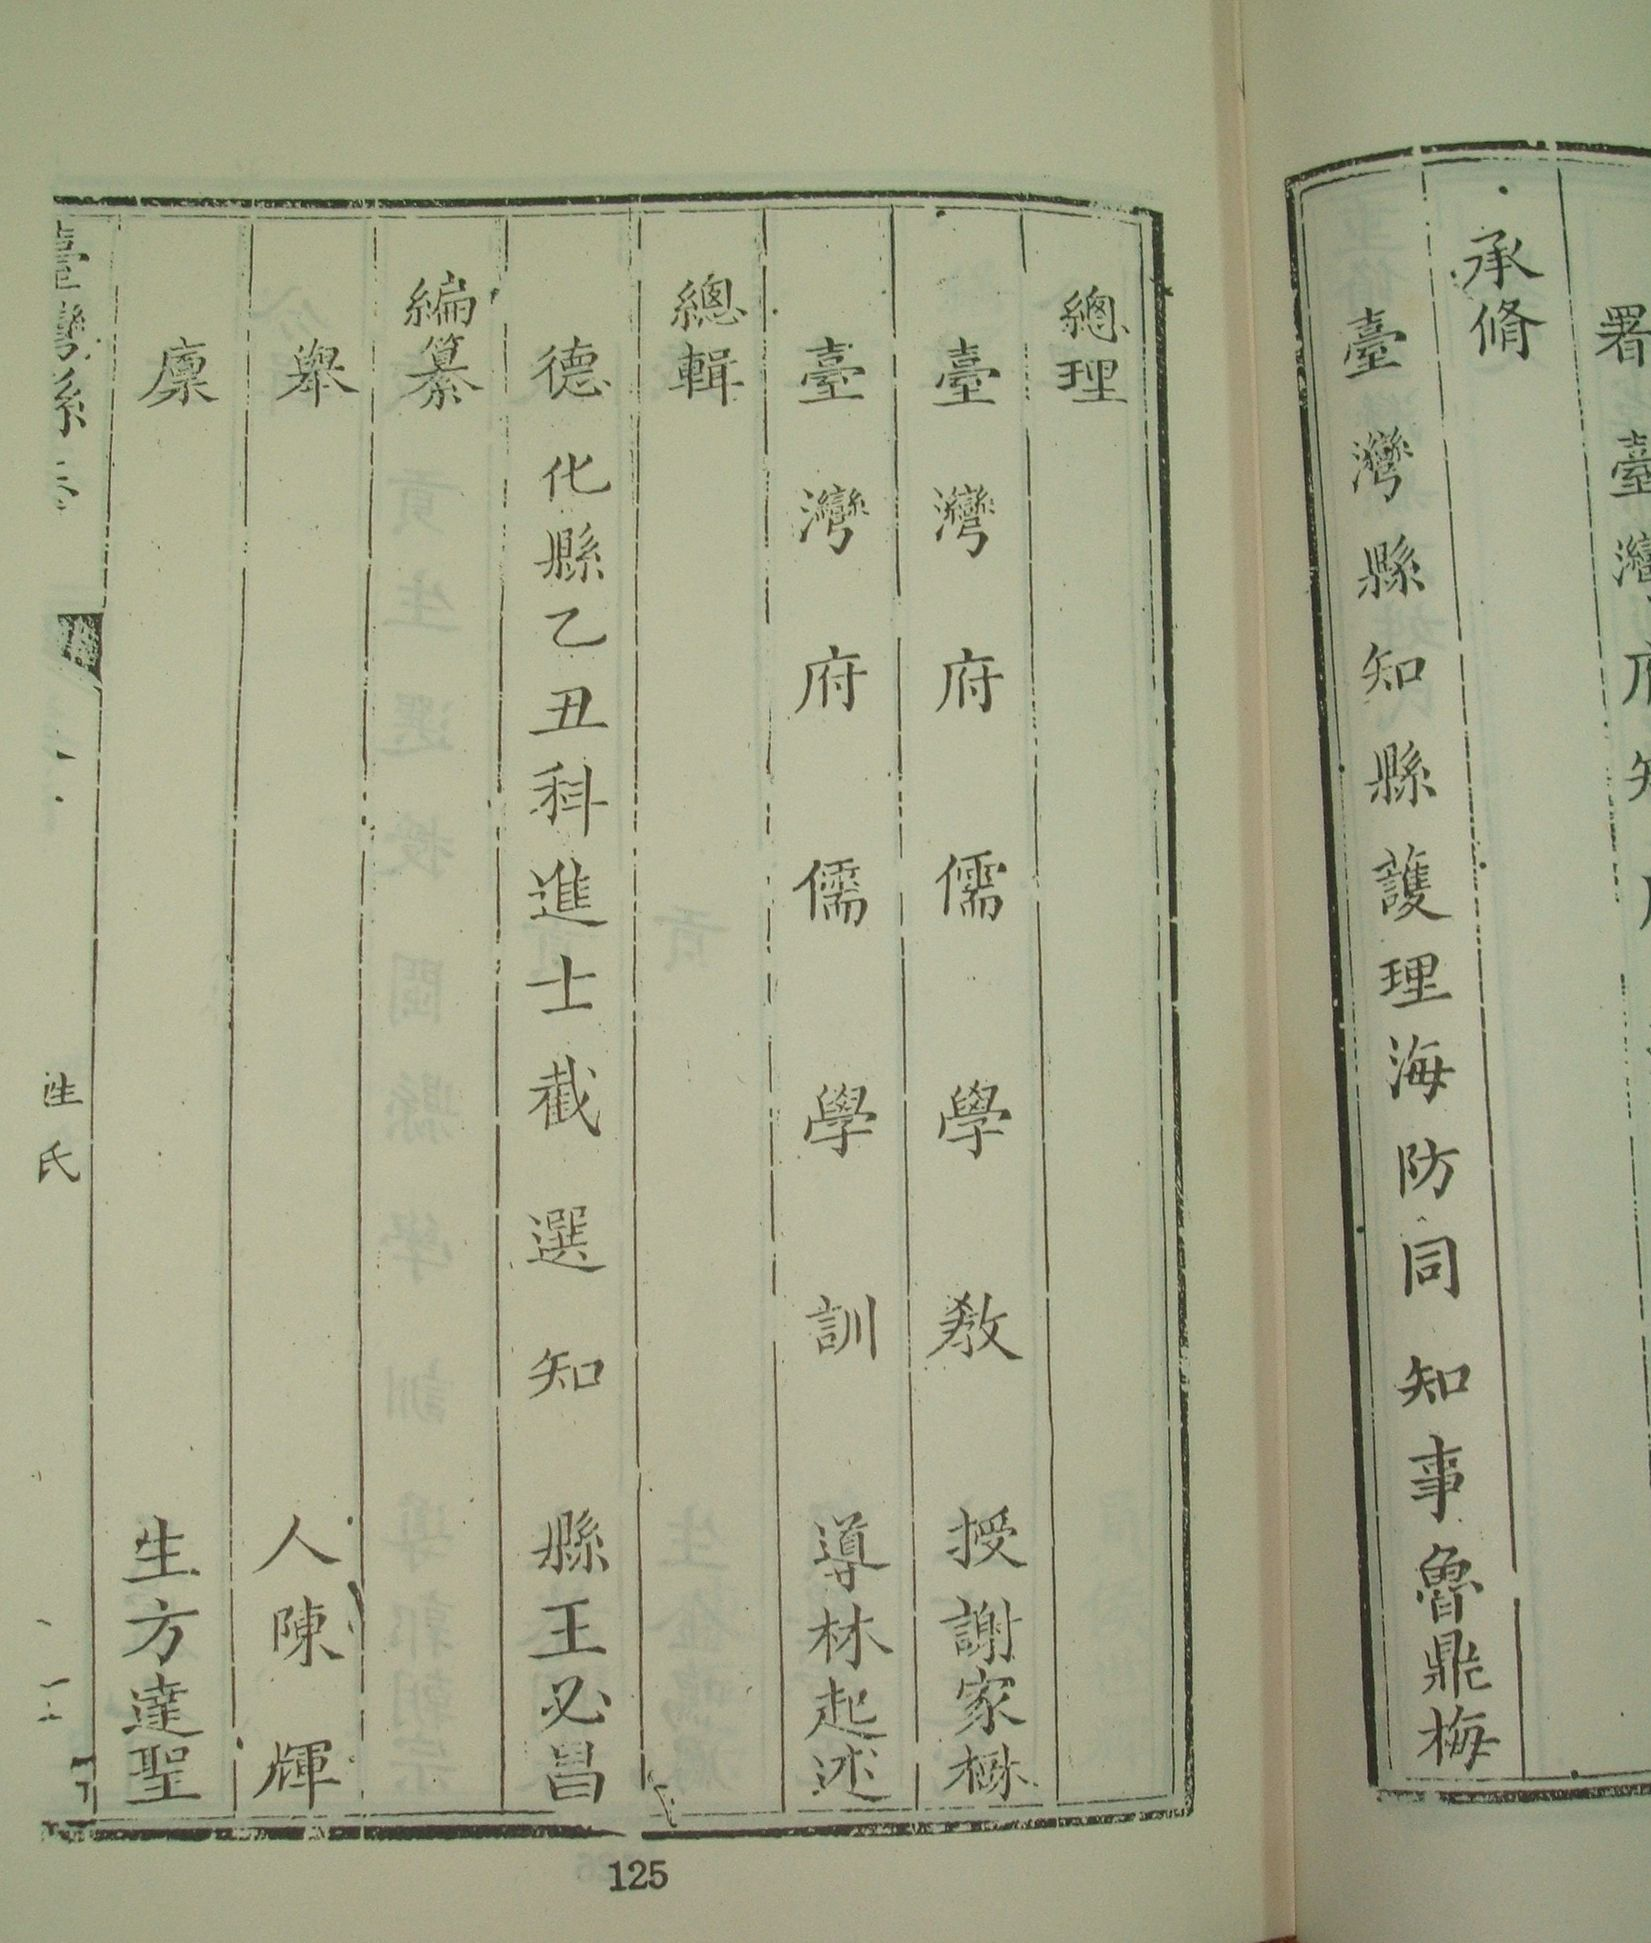 署臺灣府知府
承脩
臺灣縣知縣護理海防同知事魯鼎梅
總理
臺灣府儒學教授謝家樹
臺灣府儒學訓導林起述
總輯
德化縣乙丑科進士截選知縣王必昌
編纂
舉人陳輝
廩生方達聖
臺灣縣志
姓氏
125